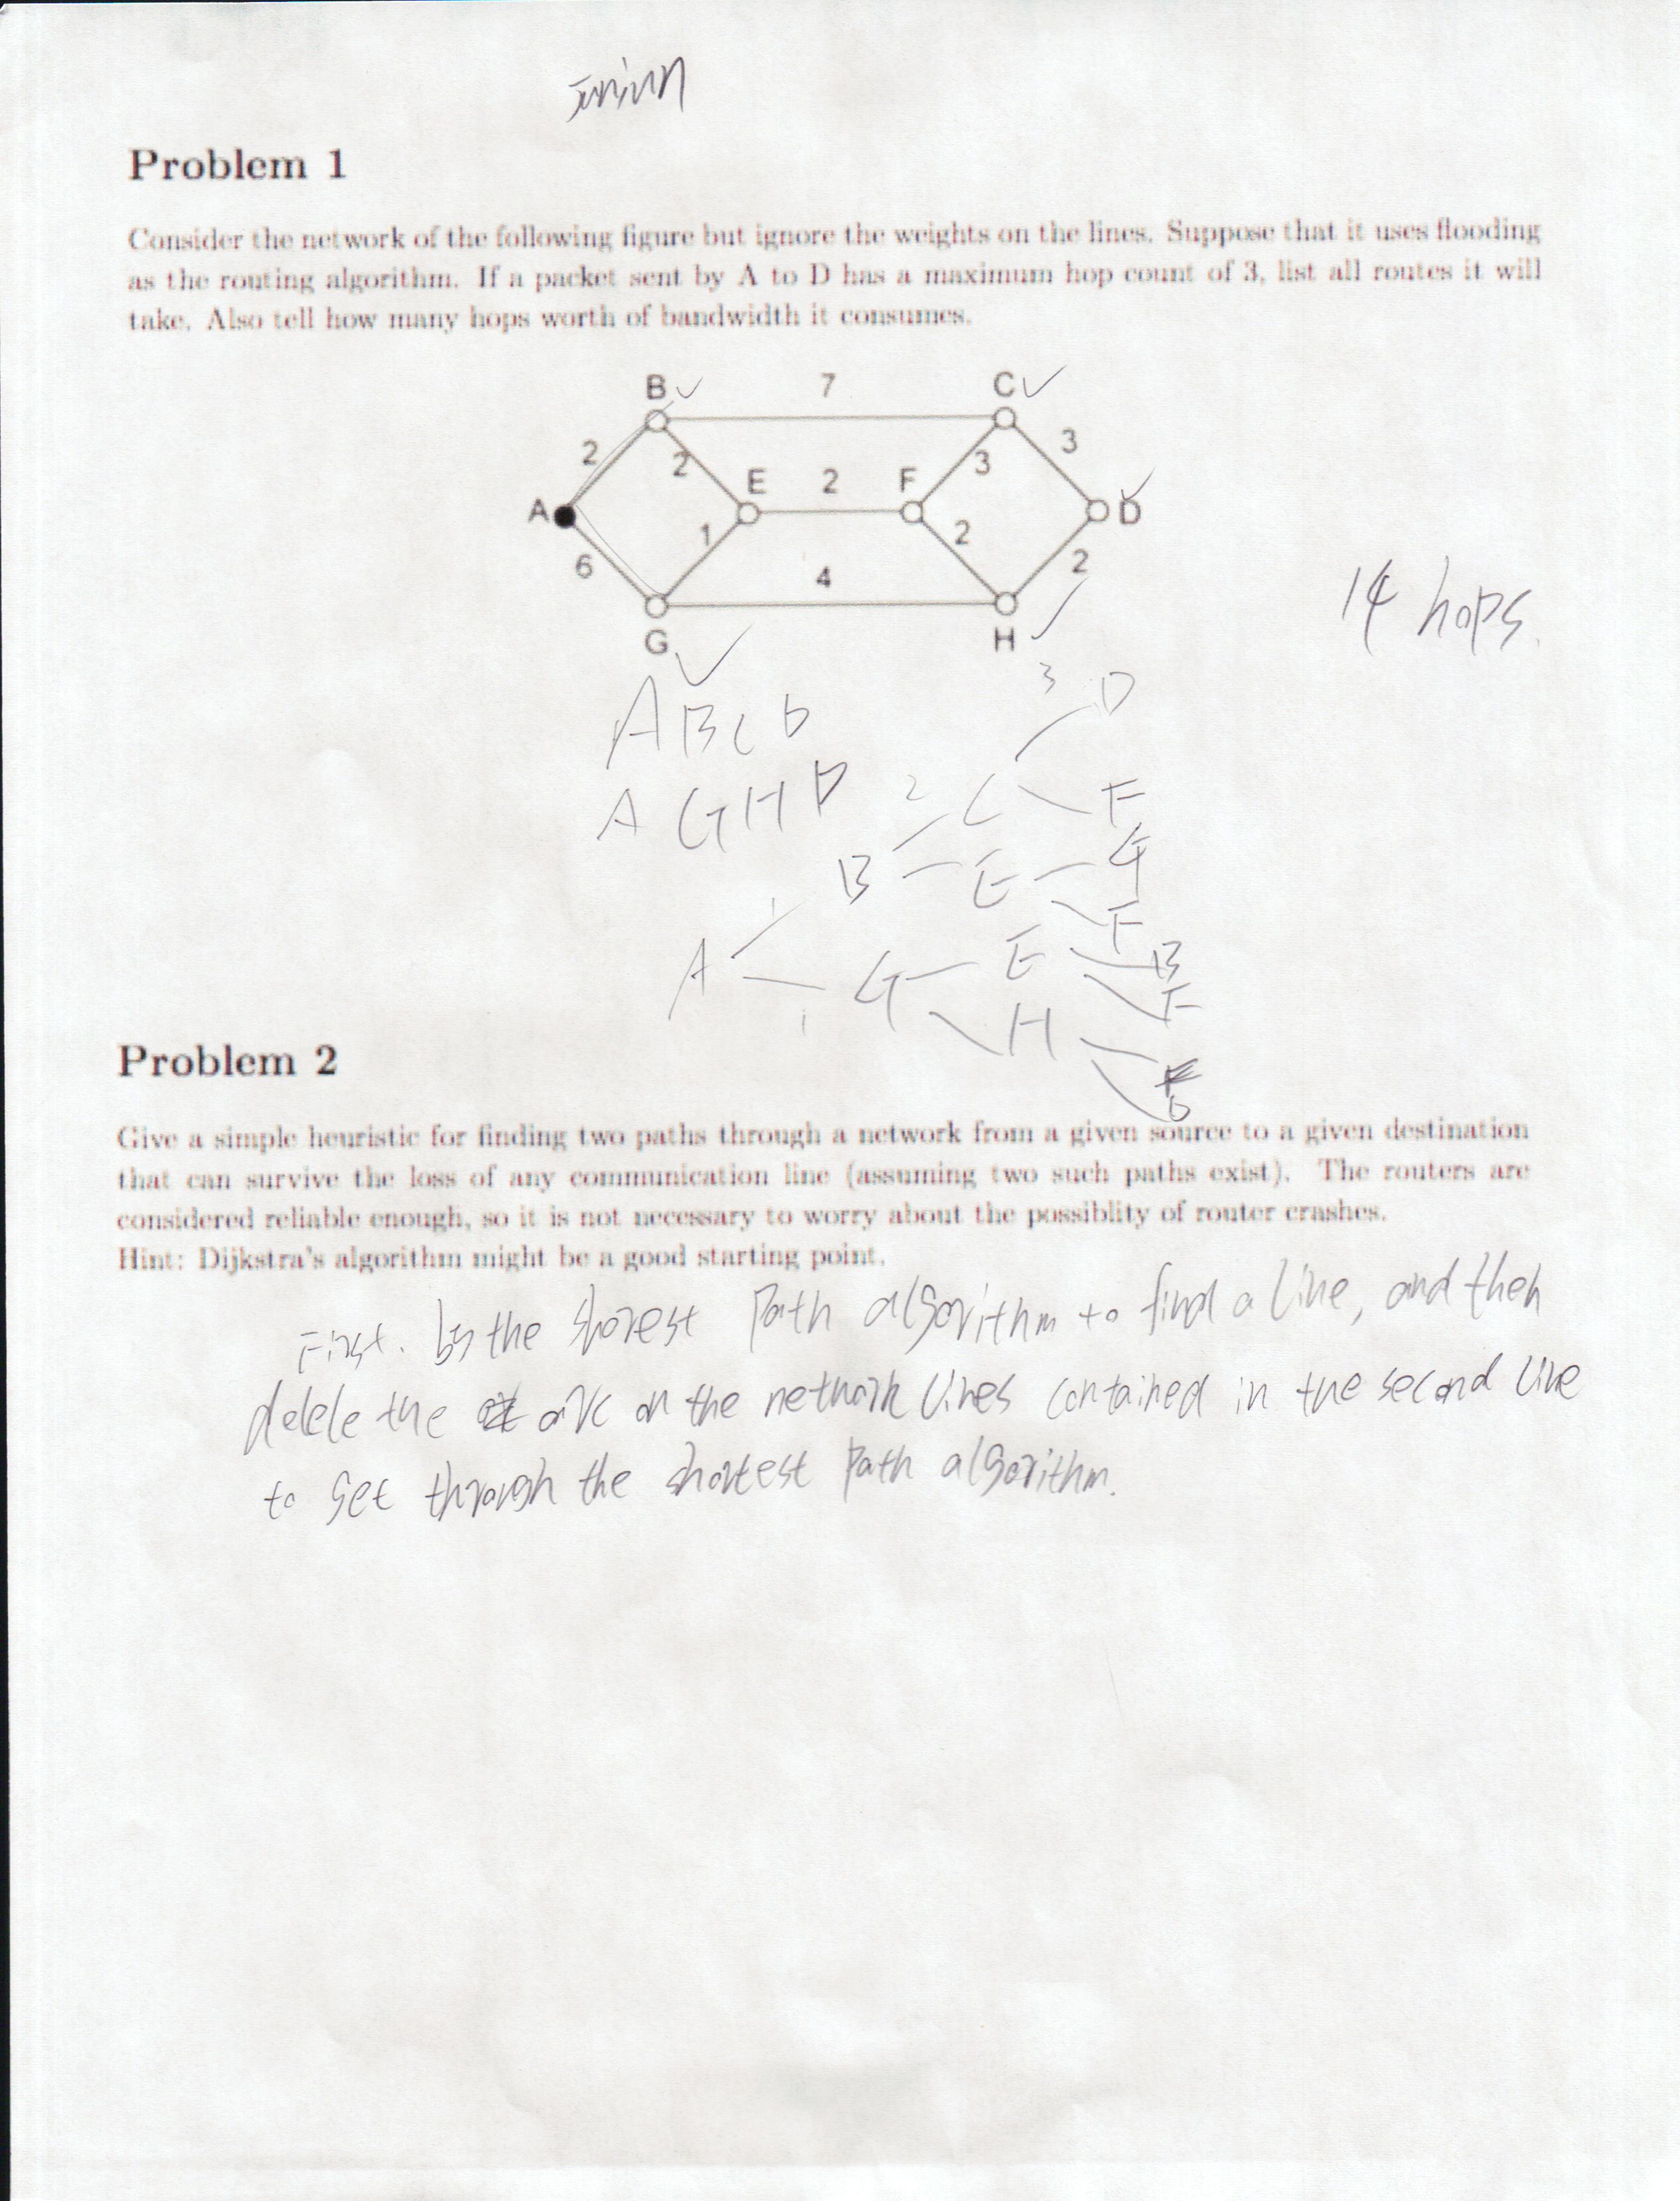 Problem 1
Consider the network of the following figure but ignore the weights on the lines. Suppose that it uses flooding
as the routing algorithm. If a packet sent by A to D has a maximum hop count of 3, list all routes it will
take. Also tell how many hops worth of bandwidth it consumes.
B 7 C
2 2 3 3
A E 2 F D
6 1 2 2
4
G H
14 hops.
A B C D
A G H D
3 D
2 C F
B E G
1 F
A G E B
F
1 H
F
D
Problem 2
Give a simple heuristic for finding two paths through a network from a given source to a given destination
that can survive the loss of any communication line (assuming two such paths exist). The routers are
considered reliable enough, so it is not necessary to worry about the possiblity of router crashes.
Hint: Dijkstra's algorithm might be a good starting point.
First. by the shorest Path algorithm to find a line, and then
delele the arc on the network lines contained in the second line
to get through the shortest Path algorithm.